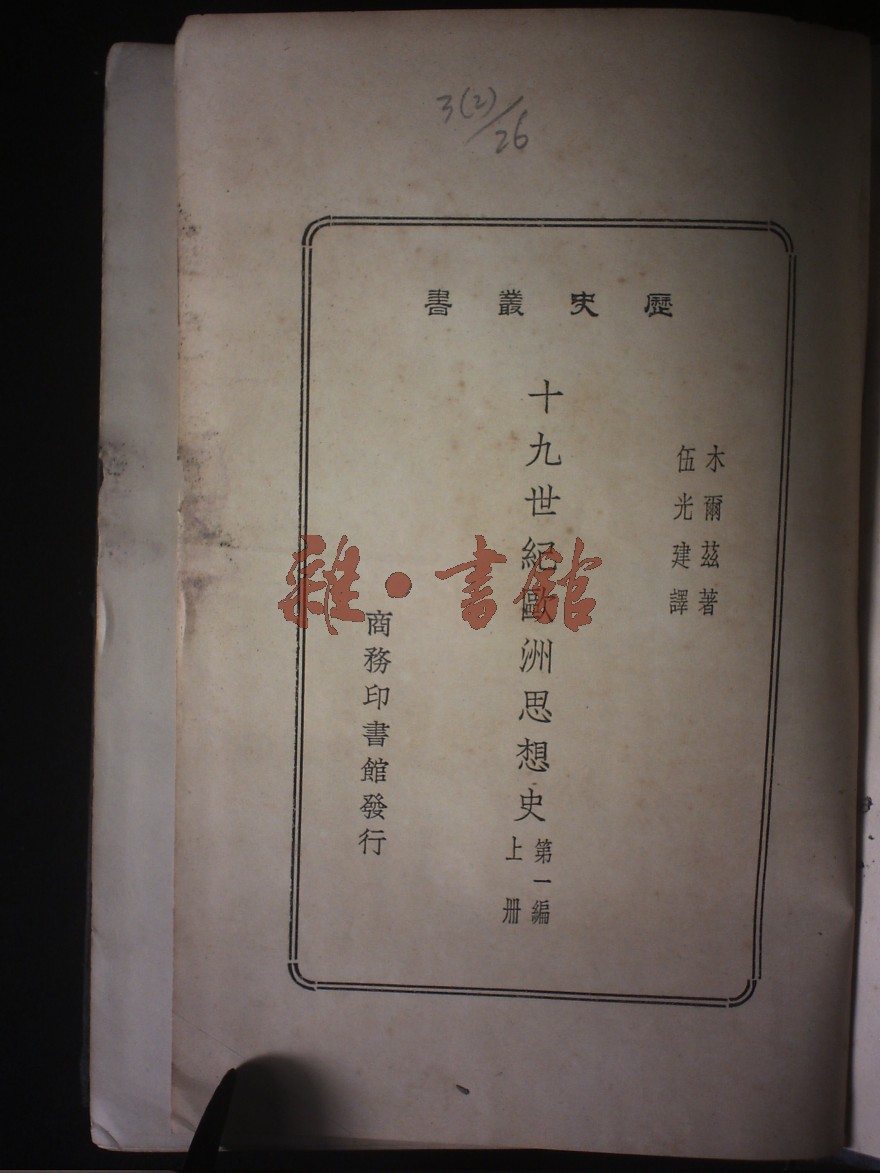 3(2)/26
歷史叢書
木爾茲著
伍光建譯
十九世紀歐洲思想史
第一編
上冊
商務印書館發行
雜·書館